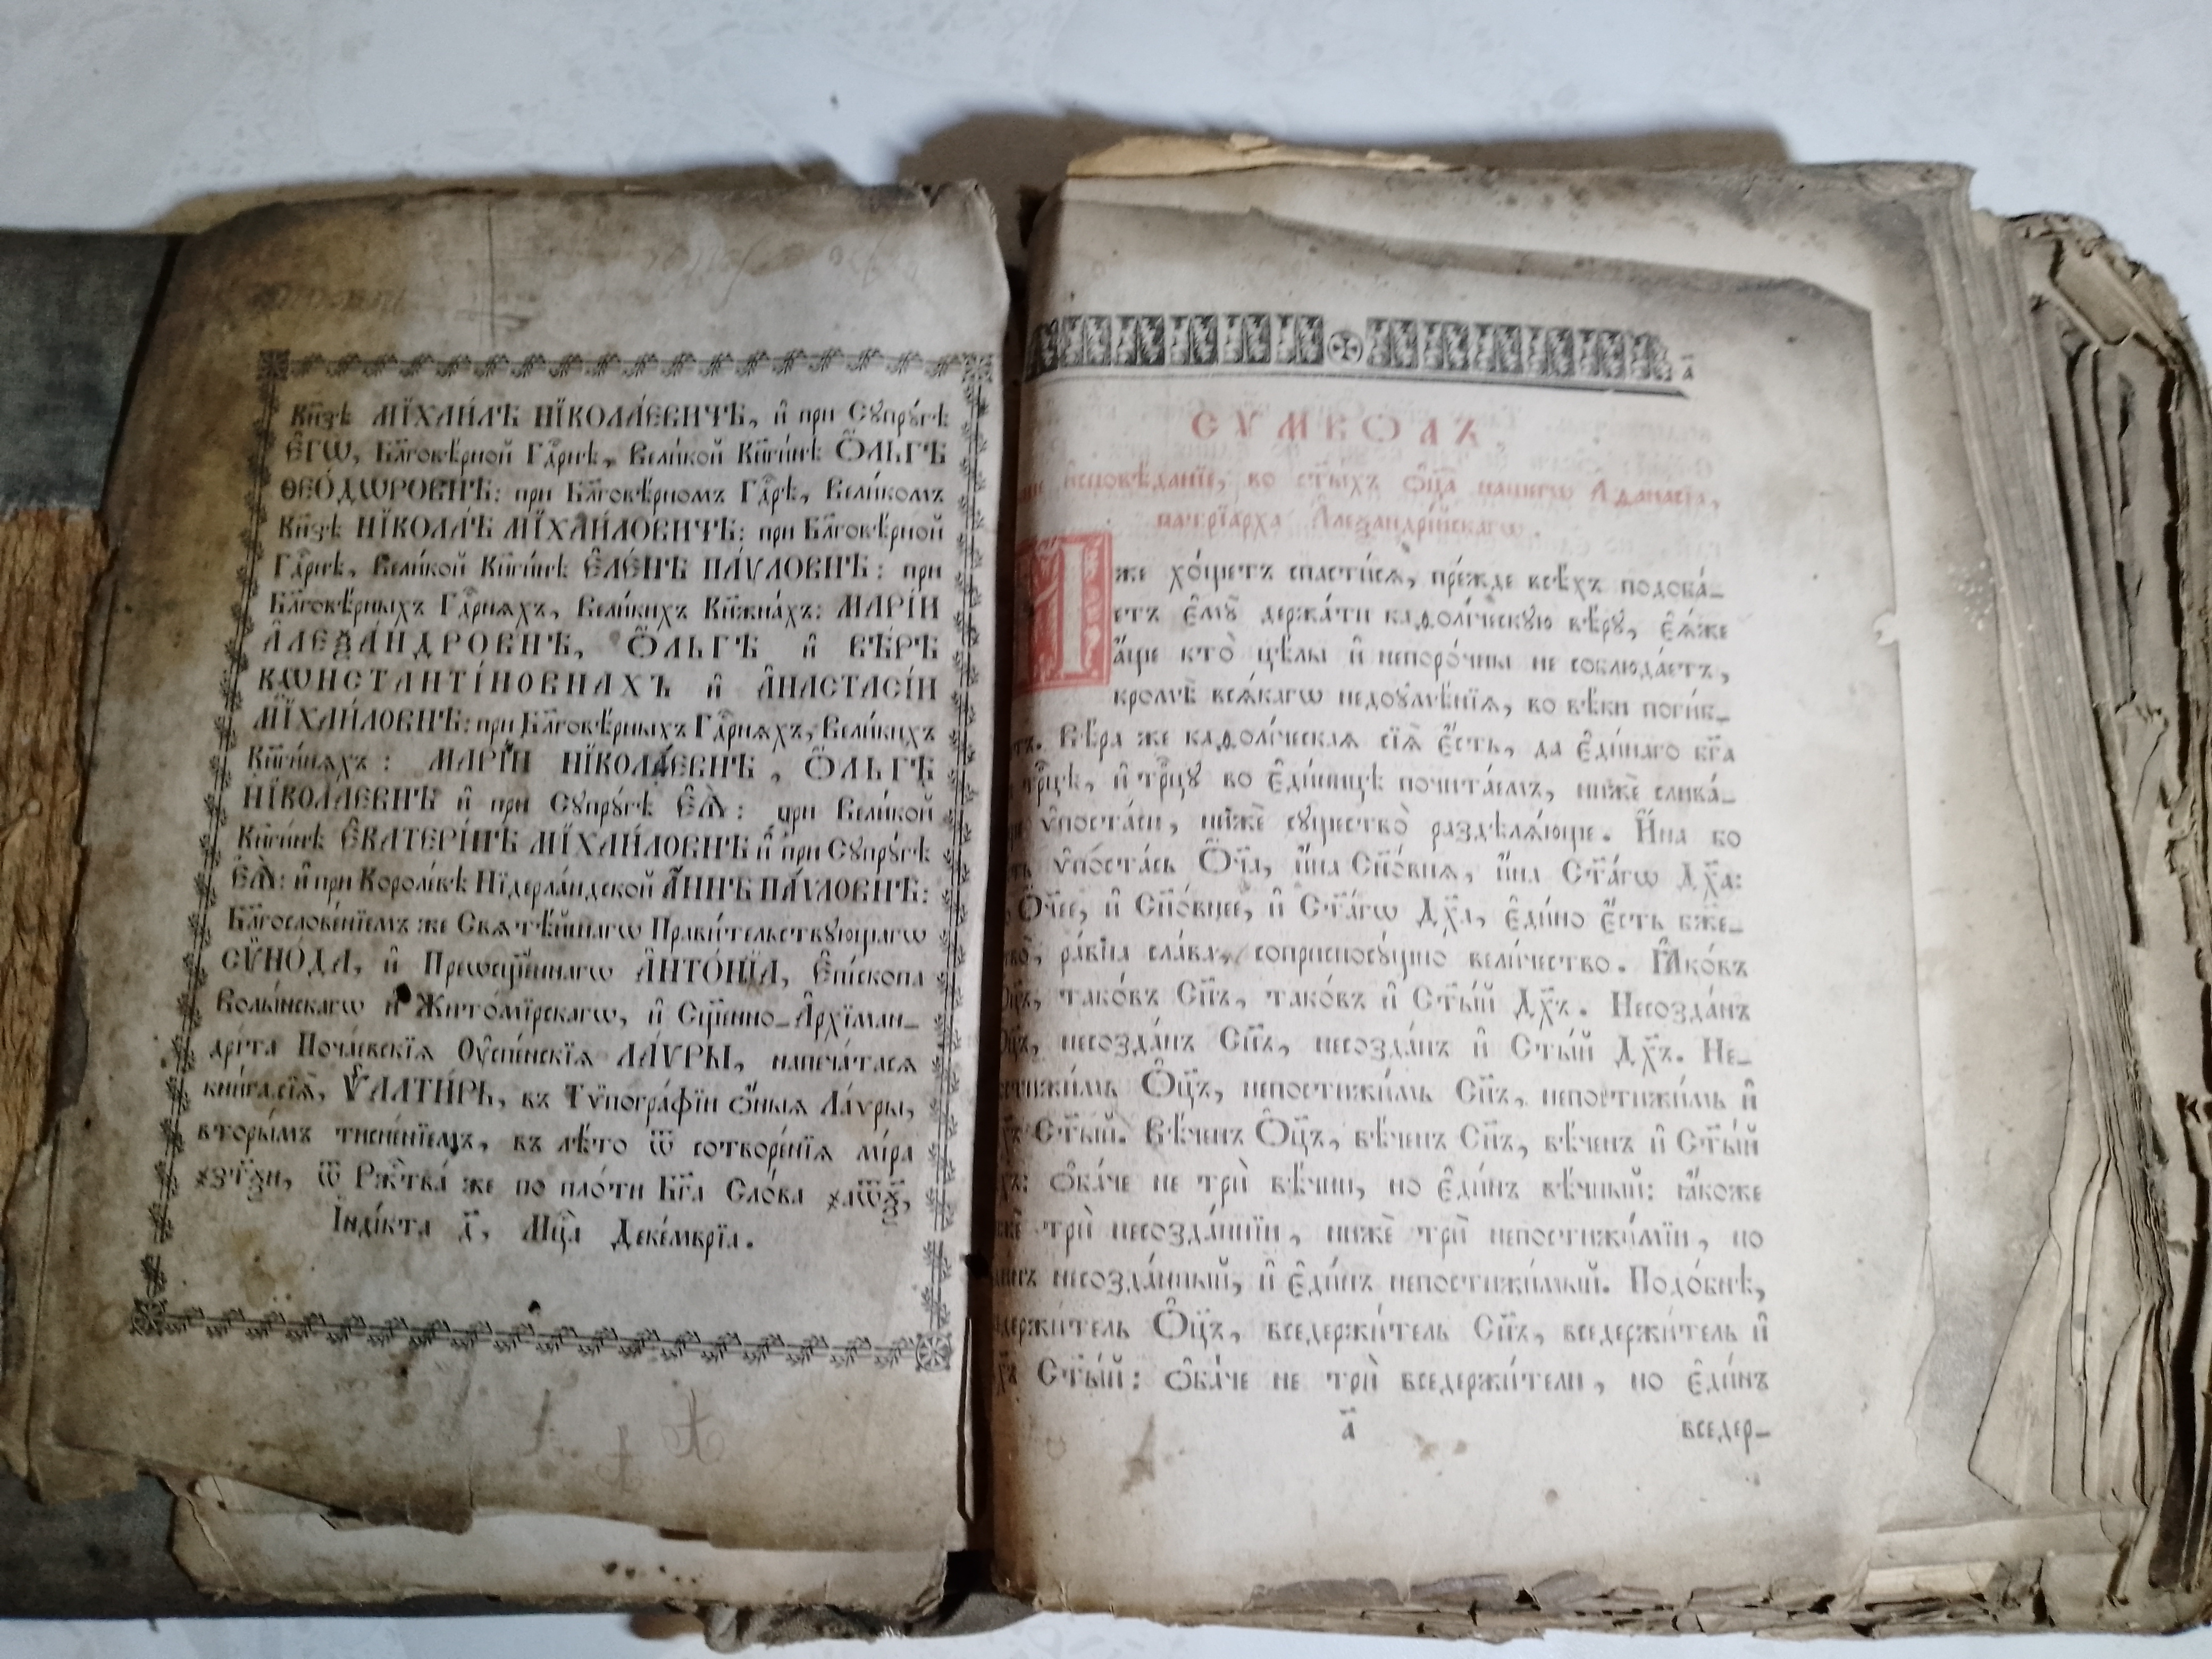 Кн҃зѣ МЇХАИ́ЛѢ НЇКОЛА́ЕВИЧѢ, и҆ при Сꙋпрꙋ́гѣ
Є҆ГѠ̀, Бл҃говѣ́рной Гдⷭ҇рнѣ, Вели́кой Кнѧги́нѣ Ѻ҆́ЛЬГѢ
ѲЕО́ДѠРОВНѢ: при Бл҃говѣ́рномъ Гдⷭ҇рѣ, Вели́комъ
Кн҃зѣ НЇКОЛА́Ѣ МЇХА́ЙЛОВИЧѢ: при Бл҃говѣ́рной
Гдⷭ҇рнѣ, Вели́кой Кн҃ги́нѣ Є҆ЛЕ́НѢ ПА́ѴЛОВНѢ: при
Бл҃говѣ́рныхъ Гдⷭ҇рнѧхъ, Вели́кихъ Кн҃жна́хъ: МАРІ́И
А҆ЛЕѮА́НДРОВНѢ, Ѻ҆́ЛЬГѢ и҆ ВѢ́РѢ
КѠНСТАНТІ́НОВНАХЪ и҆ А҆НАСТАСІ́И
МЇХА́ЙЛОВНѢ: при Бл҃говѣ́рныхъ Гдⷭ҇рнѧхъ, Вели́кихъ
Кн҃ги́нѧхъ: МАРІ́И НЇКОЛА́ЕВНѢ, Ѻ҆́ЛЬГѢ
НЇКОЛА́ЕВНѢ и҆ при Сꙋпрꙋ́гѣ Є҆Ѧ̀: при Вели́кой
Кн҃ги́нѣ Є҆КАТЕРІ́НѢ МЇХА́ЙЛОВНѢ и҆ при Сꙋпрꙋ́гѣ
Є҆Ѧ̀: и҆ при Короле́вѣ Нїдерла́ндской А҆́ННѢ ПА́ѴЛОВНѢ:
Бл҃гослове́нїемъ же Свѧтѣ́йшагѡ Прави́тельствꙋющагѡ
СѴНО́ДА, и҆ Преѡсщ҃е́ннагѡ А҆НТО́НЇА, Є҆пі́скопа
Волы́нскагѡ и҆ Жито́мїрскагѡ, и҆ Сщ҃е́нно-А҆рхїман-
дрі́та Поча́евскїѧ Оу҆спе́нскїѧ ЛА́ѴРЫ, напеча́тасѧ
кни́га сїѧ̀, ѰАЛТИ́РЬ, въ Тѷпогра́фїи ѻ҆́ныѧ Ла́ѵры,
вторы́мъ тисне́нїемъ, въ лѣ́то ѿ сотворе́нїѧ мі́ра
҂зто҃и, ѿ Рж҃тва́ же по пло́ти Бг҃а Сло́ва ҂аѿѯ҃,
І҆нді́кта д҃, Мцⷭ҇а Деке́мврїа.
а҃
СѴМВѠЛЪ
и҆сповѣ́данїе, во ст҃ыхъ ѻ҆ц҃а̀ на́шегѡ А҆ѳана́сїа,
патрїа́рха А҆леѯандрі́йскагѡ.
И҆́же хо́щетъ спасти́сѧ, пре́жде всѣ́хъ подоба́-
етъ є҆мꙋ̀ держа́ти каѳолі́ческꙋю вѣ́рꙋ, є҆ѧ́же
а҆́ще кто̀ цѣ́лы и҆ непоро́чны не соблюда́етъ,
кромѣ̀ всѧ́кагѡ недоꙋмѣ́нїѧ, во вѣ́ки поги́б-
Вѣ́ра же каѳолі́ческаѧ сїѧ̀ є҆́сть, да є҆ди́наго бг҃а
трⷪ҇цѣ, и҆ трⷪ҇цꙋ во є҆ди́ницѣ почита́емъ, нижѐ слива́-
ѵ҆поста́си, нижѐ сꙋщество̀ раздѣлѧ́юще. И҆́на бо
ѵ҆поста́сь Ѻ҆́ч҃а, и҆́на Сн҃о́внѧ, и҆́на Ст҃а́гѡ Дх҃а:
Ѻ҆́ч҃ее, и҆ Сн҃о́внее, и҆ Ст҃а́гѡ Дх҃а, є҆ди́но є҆́сть бж҃е-
ра́вна сла́ва, соприсносꙋ́щно вели́чество. Ꙗ҆ко́въ
Ѻ҆ц҃ъ, тако́въ Сн҃ъ, тако́въ и҆ Ст҃ы́й Дх҃ъ. Несозда́нъ
Ѻ҆ц҃ъ, несозда́нъ Сн҃ъ, несозда́нъ и҆ Ст҃ы́й Дх҃ъ. Не-
стижи́мь Ѻ҆ц҃ъ, непостижи́мь Сн҃ъ, непостижи́мь и҆
Ст҃ы́й. Вѣ́ченъ Ѻ҆ц҃ъ, вѣ́ченъ Сн҃ъ, вѣ́ченъ и҆ Ст҃ы́й
ѻ҆ба́че не трѝ вѣ́чни, но є҆ди́нъ вѣ́чный: ꙗ҆́коже
трѝ несозда́ннїи, нижѐ трѝ непостижи́мїи, но
несозда́нный, и҆ є҆ди́нъ непостижи́мый. Подо́бнѣ,
держи́тель Ѻ҆ц҃ъ, вседержи́тель Сн҃ъ, вседержи́тель и҆
Ст҃ы́й: ѻ҆ба́че не трѝ вседержи́тели, но є҆ди́нъ
а҃ вседер-